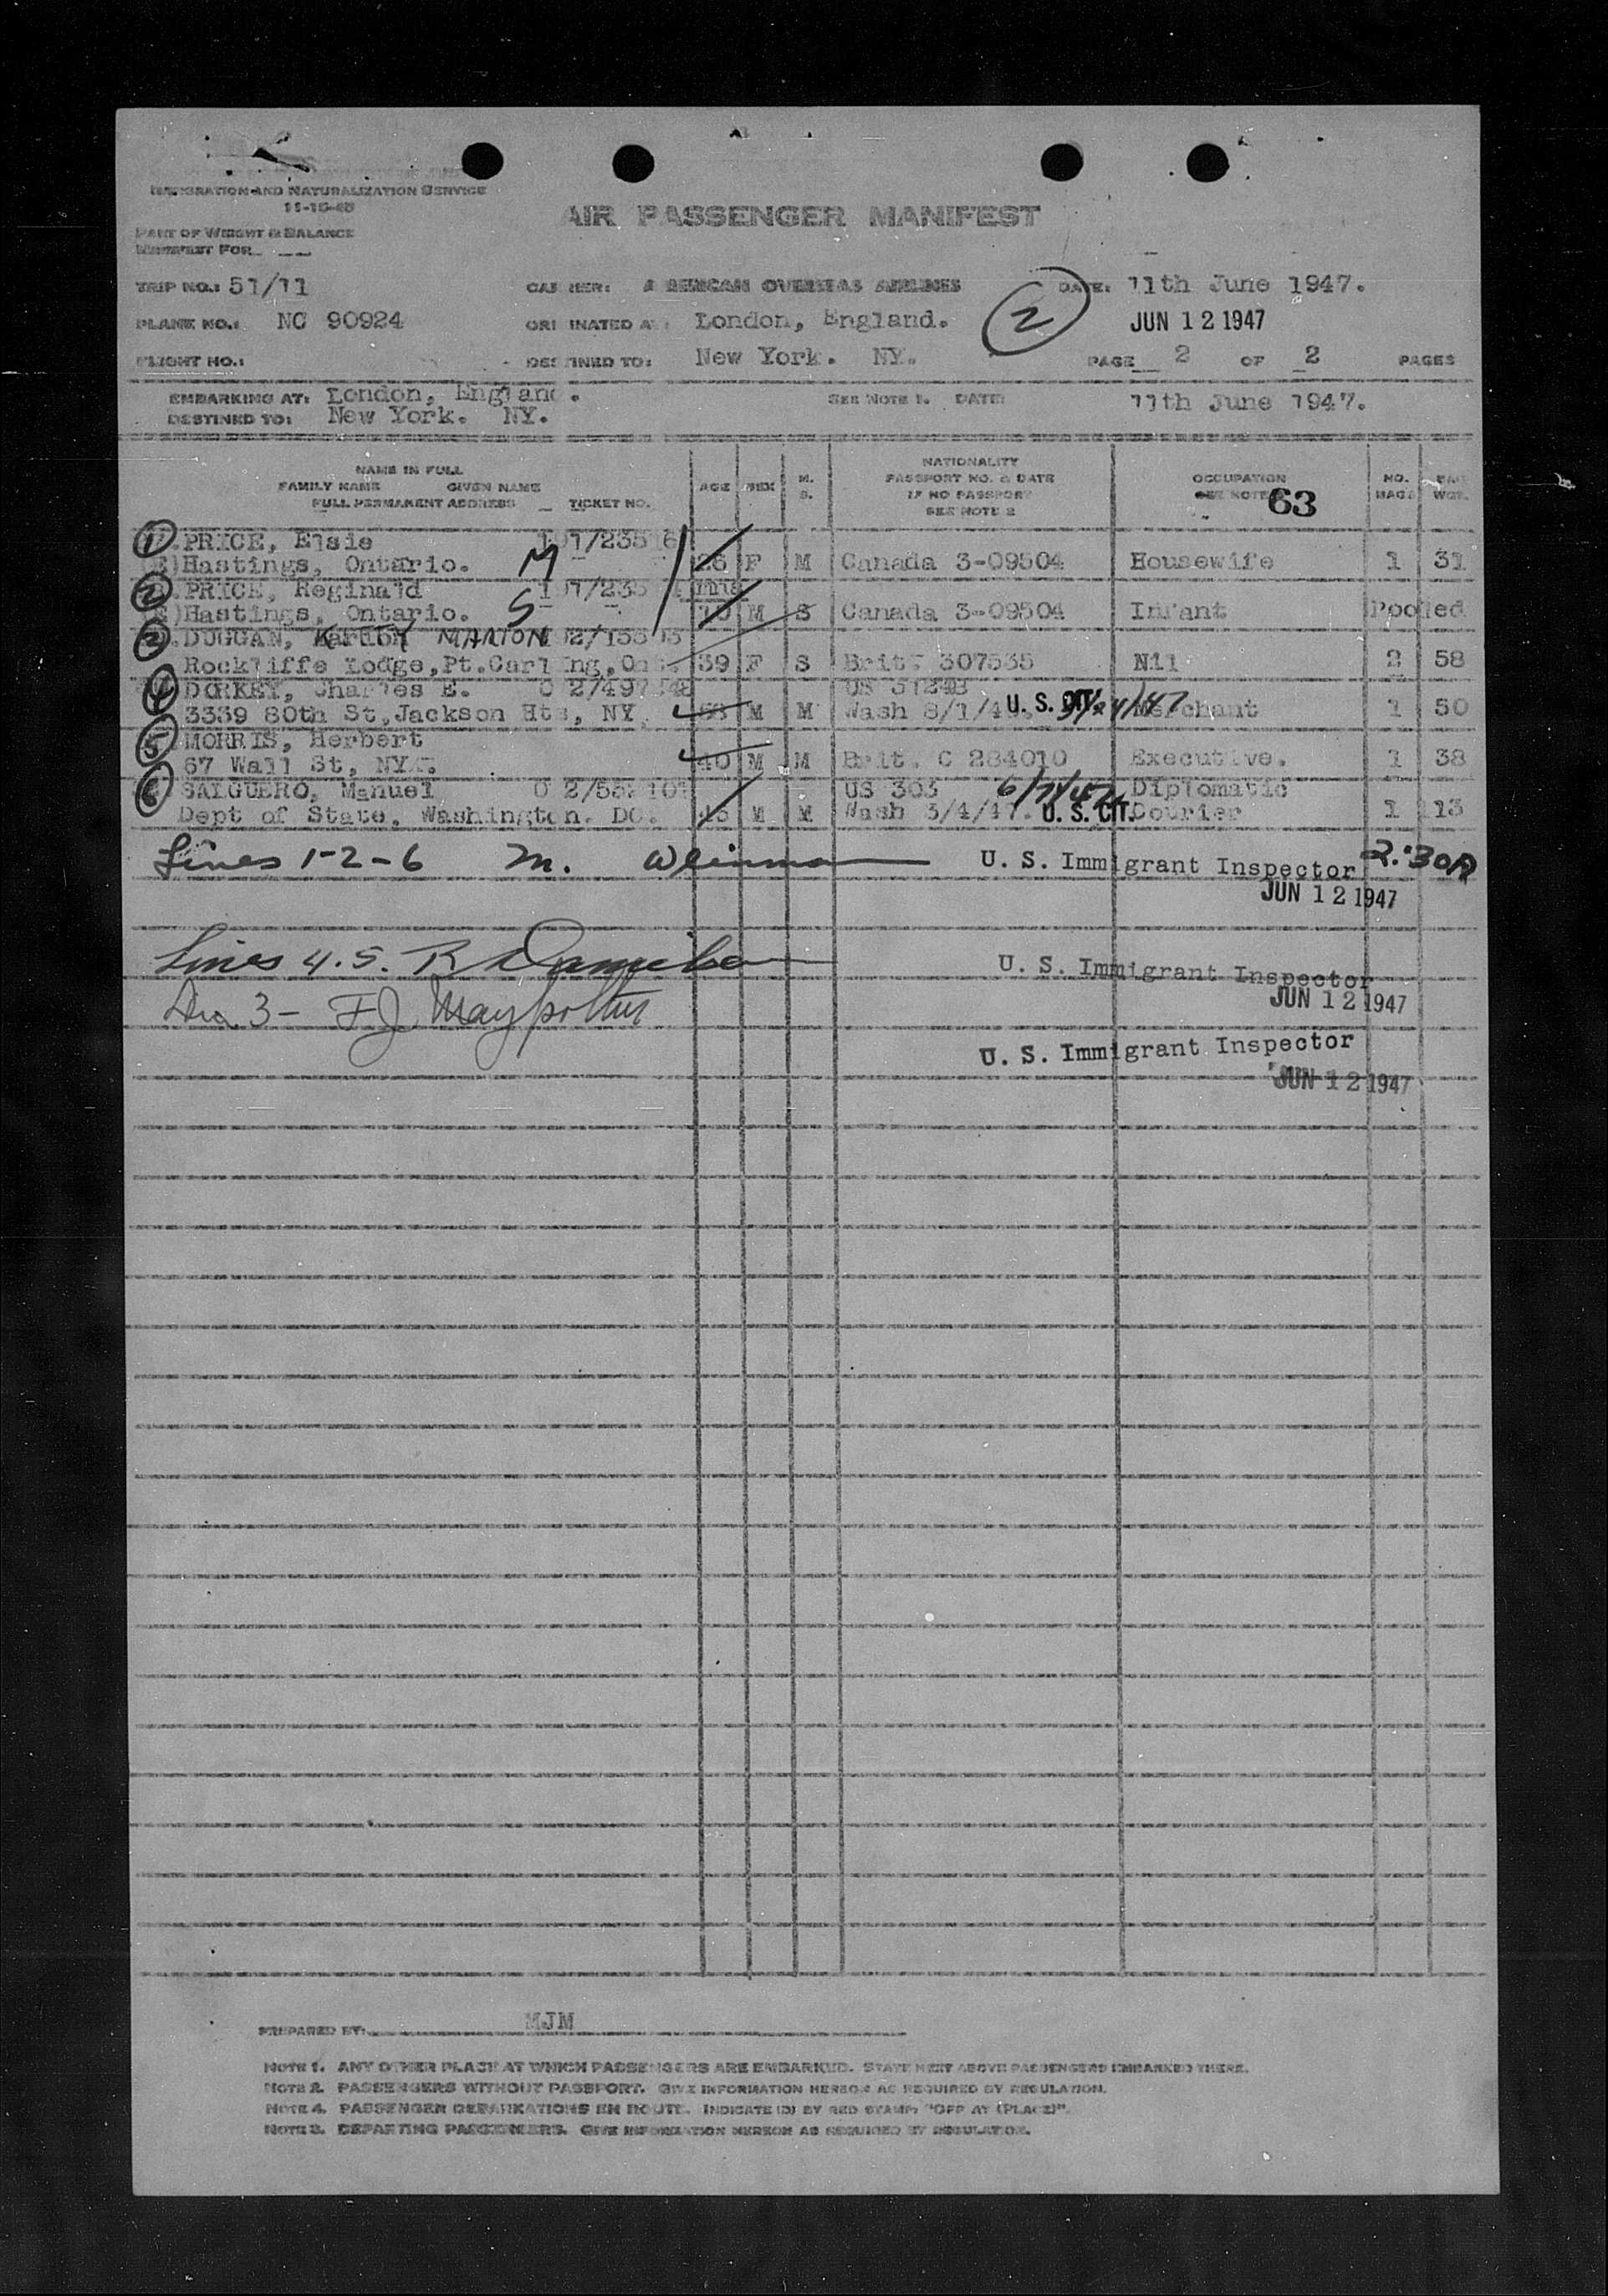 IMMIGRATION AND NATURALIZATION SERVICE
11-15-45
AIR PASSENGER MANIFEST
PART OF WEIGHT & BALANCE
MANIFEST FOR
TRIP NO.: 51/11 CARRIER: AMERICAN OVERSEAS AIRLINES DATE: 11th June 1947.
PLANE NO.: NC 90924 ORIGINATED AT: London, England. 2 JUN 12 1947
FLIGHT NO.: DESTINED TO: New York. NY. PAGE 2 OF 2 PAGES
EMBARKING AT: London, England. SEE NOTE 1. DATE: 11th June 1947.
DESTINED TO: New York. NY.
NAME IN FULL
FAMILY NAME GIVEN NAME
FULL PERMANENT ADDRESS TICKET NO. AGE SEX M. S. NATIONALITY PASSPORT NO. & DATE IF NO PASSPORT SEE NOTE 2 OCCUPATION SEE NOTE 63 NO. BAGS BAG WGT.
1 PRICE, Elsie
Hastings, Ontario. M 26 F M Canada 3-09504 Housewife 1 31
2 PRICE, Reginald
Hastings, Ontario. S M S Canada 3-09504 Infant Pooled
3 DUGGAN, MARION
Rockliffe Lodge, Pt.Carling, Ont. 39 F S Brit. 307535 Nil 2 58
4 DORKEY, Charles E. US 31243
3339 80th St, Jackson Hts, NY. 53 M M Wash 8/1/4 U. S. CIT. Merchant 1 50
5 MORRIS, Herbert
67 Wall St, NYC. 40 M M Brit. C 284010 Executive. 1 38
6 SALGUERO, Manuel US 303 Diplomatic
Dept of State, Washington. DC. 45 M M Wash 3/4/47. U. S. CIT. Courier 1 13
Lines 1-2-6 M. Weinman U. S. Immigrant Inspector 2:30A
JUN 12 1947
Lines 4.5. U. S. Immigrant Inspector
JUN 12 1947
3 - FJ
U. S. Immigrant Inspector
JUN 12 1947
PREPARED BY: MJM
NOTE 1. ANY OTHER PLACE AT WHICH PASSENGERS ARE EMBARKED. STATE NEXT ABOVE PASSENGERS EMBARKED THERE.
NOTE 2. PASSENGERS WITHOUT PASSPORT. GIVE INFORMATION HEREON AS REQUIRED BY REGULATION.
NOTE 4. PASSENGER DEBARKATIONS EN ROUTE. INDICATE (D) BY RED STAMP: "OFF AT (PLACE)".
NOTE 3. DEPARTING PASSENGERS. GIVE INFORMATION HEREON AS REQUIRED BY REGULATION.